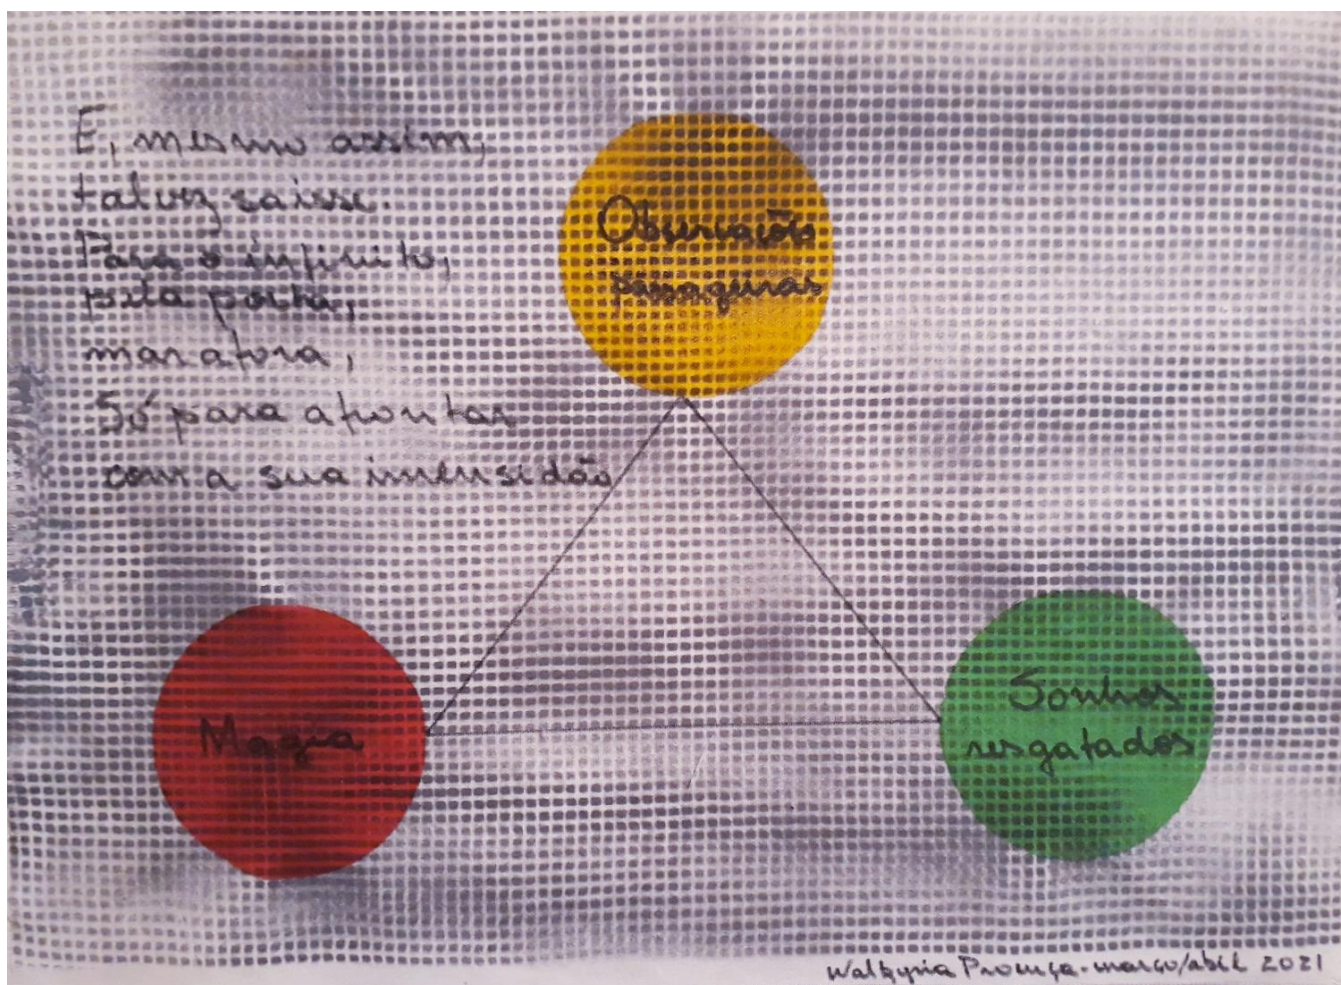 E, mesmo assim,
talvez saisse.
Para o infinito,
pela porta,
mar afora,
Só para apontar
com a sua imensidão
Observações
passageiras
Magia
Sonhos
resgatados
Walkyria Proença - março/abril 2021